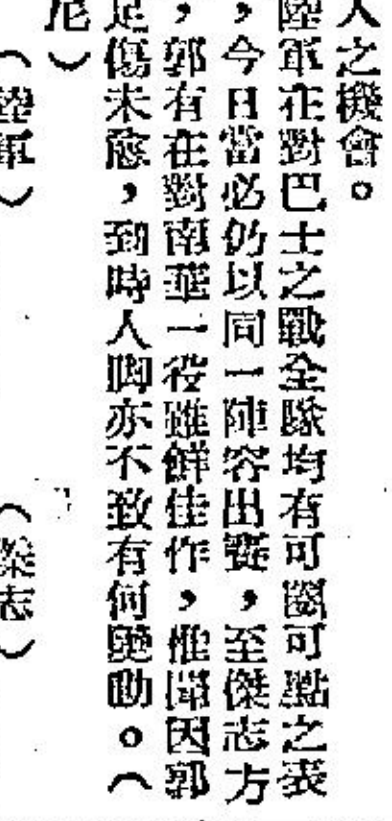 人之機會。
陸軍在對巴士之戰全隊均有可圈可點之表
，今日當必仍以同一陣容出賽，至傑志方
，郭有在對南華一役雖鮮佳作，惟聞因郭
足傷未愈，到時人脚亦不致有何變動。（
尼）
（陸軍）
（傑志）